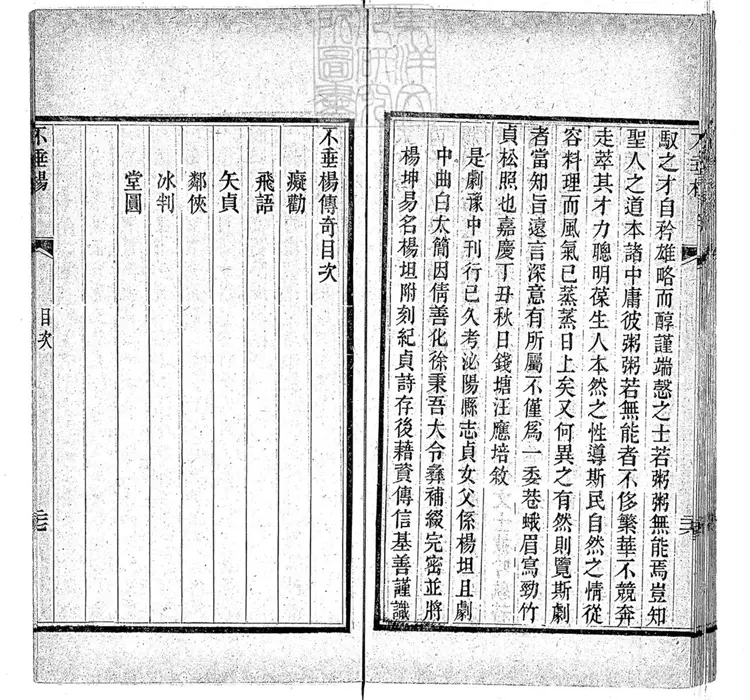 馭之才自矜雄略而醇謹端慤之士若粥粥無能焉豈知
聖人之道本諸中庸彼粥粥若無能者不侈繁華不競奔
走萃其才力聰明葆生人本然之性導斯民自然之情從
容料理而風氣已蒸蒸日上矣又何異之有然則覽斯劇
者當知旨遠言深意有所屬不僅爲一委巷蛾眉寫勁竹
貞松照也嘉慶丁丑秋日錢塘汪應培敘
是劇豫中刊行已久考泌陽縣志貞女父係楊坦且劇
中曲白太簡因倩善化徐秉吾大令彝補綴完密並將
楊坤易名楊坦附刻紀貞詩存後藉資傳信基善謹識
不垂楊傳奇目次
癡勸
飛語
矢貞
鄰俠
冰判
堂圓
不垂楊
目次